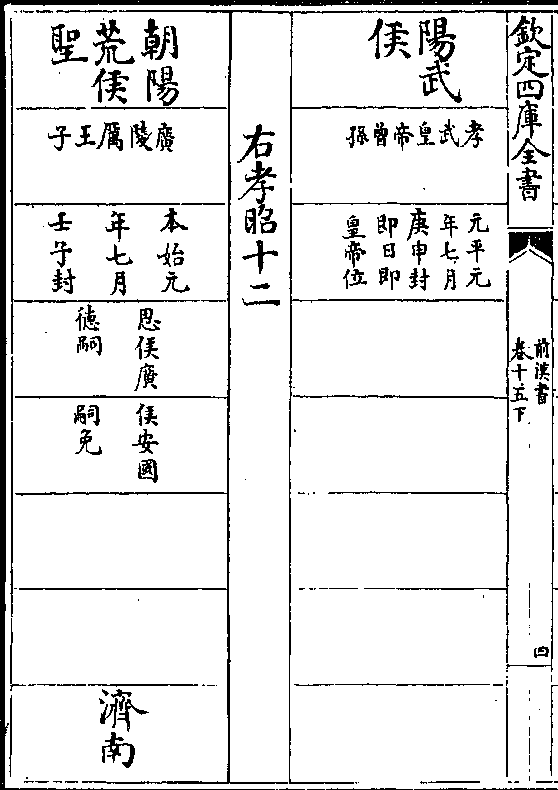 欽定四庫全書
前漢書
卷十五下
四
陽武
侯
孝武皇帝曾孫
元平元
年七月
庚申封
即日即
皇帝位
右孝昭十二
朝陽
荒侯
聖
廣陵厲王子
本始元
年七月
壬子封
思侯廣
徳嗣
侯安國
嗣免
濟南